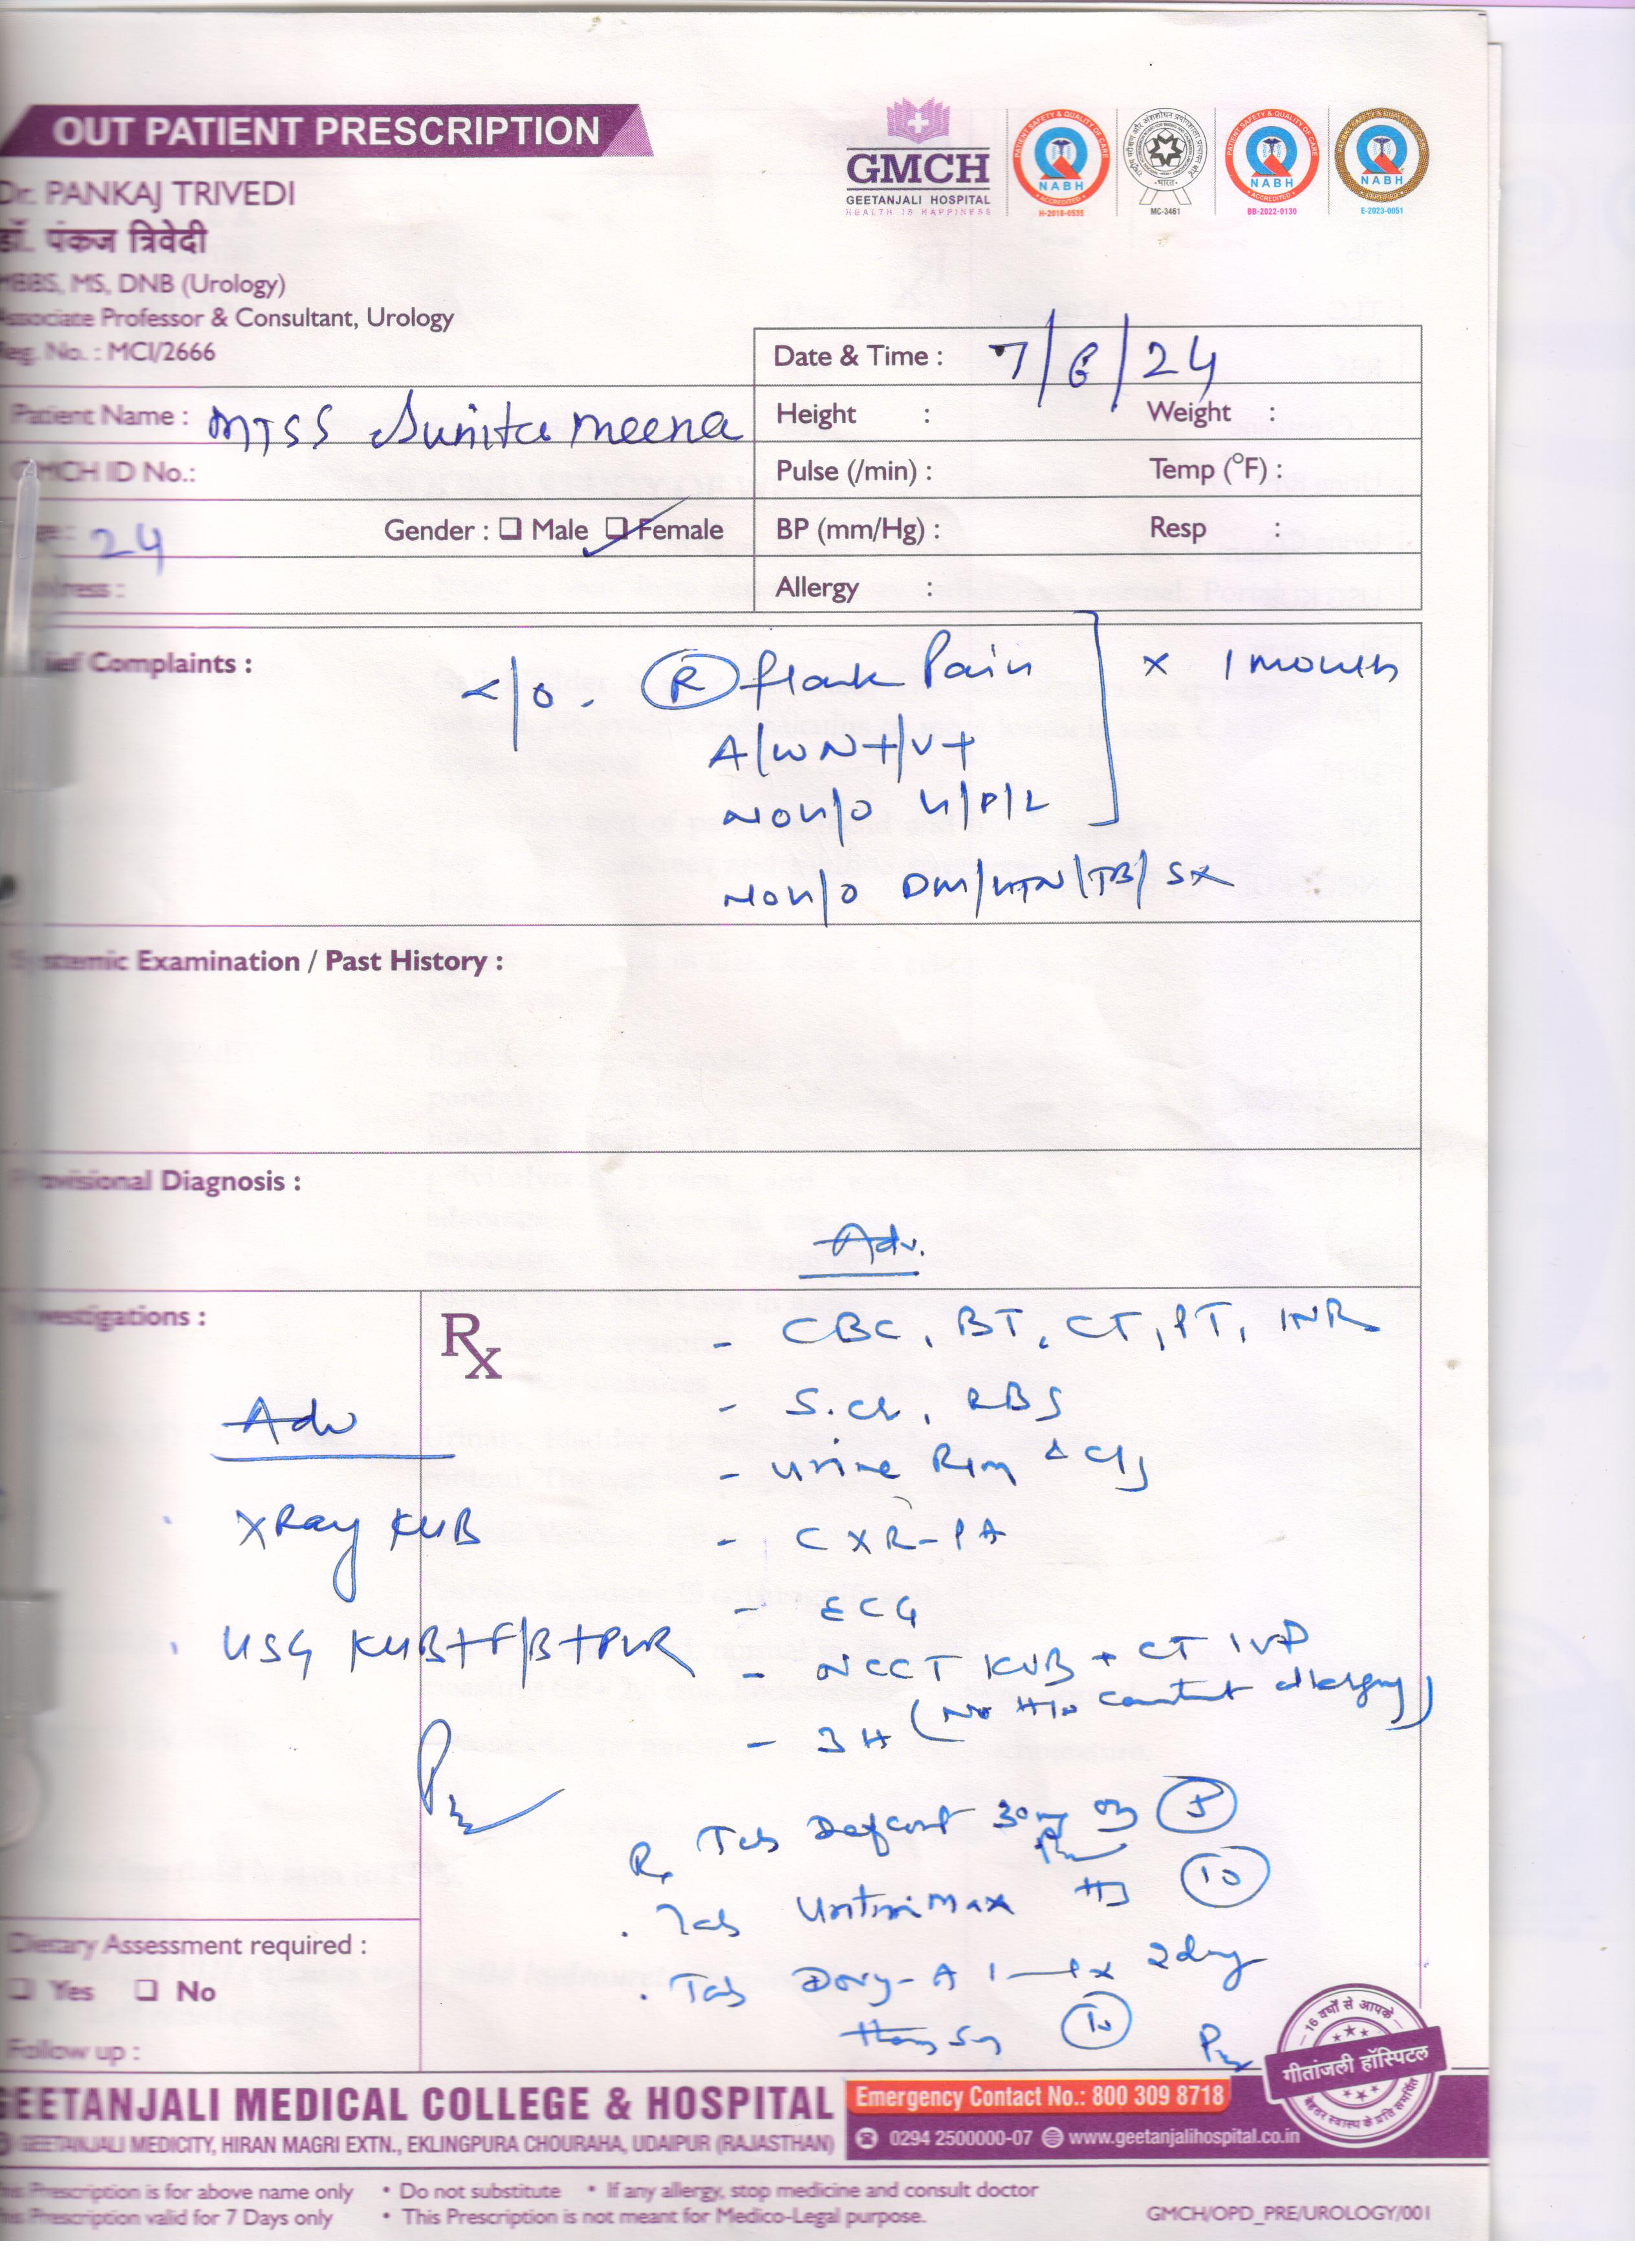 OUT PATIENT PRESCRIPTION
GMCH
GEETANJALI HOSPITAL
HEALTH IS HAPPINESS
PATIENT SAFETY & QUALITY OF CARE
NABH
ACCREDITED
H-2018-0535
MC-3461
NABH
ACCREDITED
BB-2022-0130
NABH
E-2023-0051
Dr. PANKAJ TRIVEDI
डॉ. पंकज त्रिवेदी
MBBS, MS, DNB (Urology)
Associate Professor & Consultant, Urology
Reg. No. : MCI/2666
Date & Time : 7/6/24
Patient Name : MISS Sunita meena
Height : Weight :
GMCH ID No.:
Pulse (/min) : Temp (°F) :
Age : 24 Gender : Male Female
BP (mm/Hg) : Resp :
Address :
Allergy :
Chief Complaints :
c/o. R flank Pain x 1 month
A/W N+/V+
NO H/O H/P/L
NO H/O DM/HTN/TB/SX
Systemic Examination / Past History :
Provisional Diagnosis :
Adv.
Investigations :
Rx
- CBC, BT, CT, PT, INR
- S.cr, RBS
- urine R/m & C/s
- CXR-PA
- ECG
- NCCT KUB + CT IVP
(No H/o contrast allergy)
- 3H
Adv
XRay KUB
USG KUB+F/B+PVR
R Tab Defcort 30mg 5
Tab HS 10
Tab 1-1 x 2day
10
Dietary Assessment required :
Yes No
Follow up :
16 वर्षों से आपके
गीतांजली हॉस्पिटल
बेहतर स्वास्थ के प्रति समर्पित
GEETANJALI MEDICAL COLLEGE & HOSPITAL
Emergency Contact No.: 800 309 8718
GEETANJALI MEDICITY, HIRAN MAGRI EXTN., EKLINGPURA CHOURAHA, UDAIPUR (RAJASTHAN)
0294 2500000-07 www.geetanjalihospital.co.in
This Prescription is for above name only • Do not substitute • If any allergy, stop medicine and consult doctor
This Prescription valid for 7 Days only • This Prescription is not meant for Medico-Legal purpose.
GMCH/OPD_PRE/UROLOGY/001